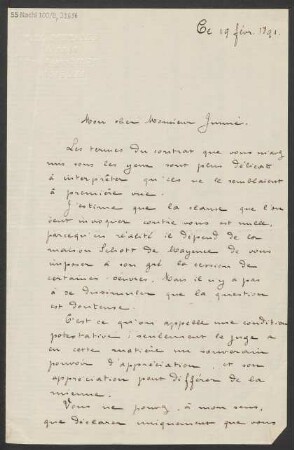 55 Nachl 100/B,
Ce 19 fév. 1891.
Mon cher Monsieur
Les termes du contrat que vous m'avez
mis sous les yeux sont plus délicats
à interpréter qu'ils ne le semblaient
à première vue.
J'estime que la clause que l'on
veut invoquer contre vous est nulle,
parcequ'en réalité il dépend de la
maison Schott de Mayence de vous
imposer à son gré la cession de
certaines oeuvres. Mais il n'y a pas
à se dissimuler que la question
est douteuse.
C'est ce qu'on appelle une condition
potestative ; seulement le juge a
en cette matière un souverain
pouvoir d'appréciation, et son
appréciation peut différer de la
mienne.
Vous ne pouvez, à mon sens,
que déclarer uniquement que vous